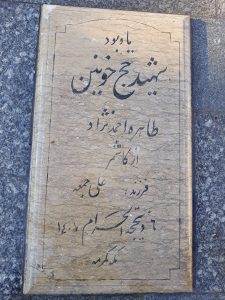 یادبود
شهید حج خونین
طاهره احمدنژاد
از کاشمر
فرزند: علی جمعه
۶ ذیحجة الحرام ۱۴۰۷
مکه مکرمه